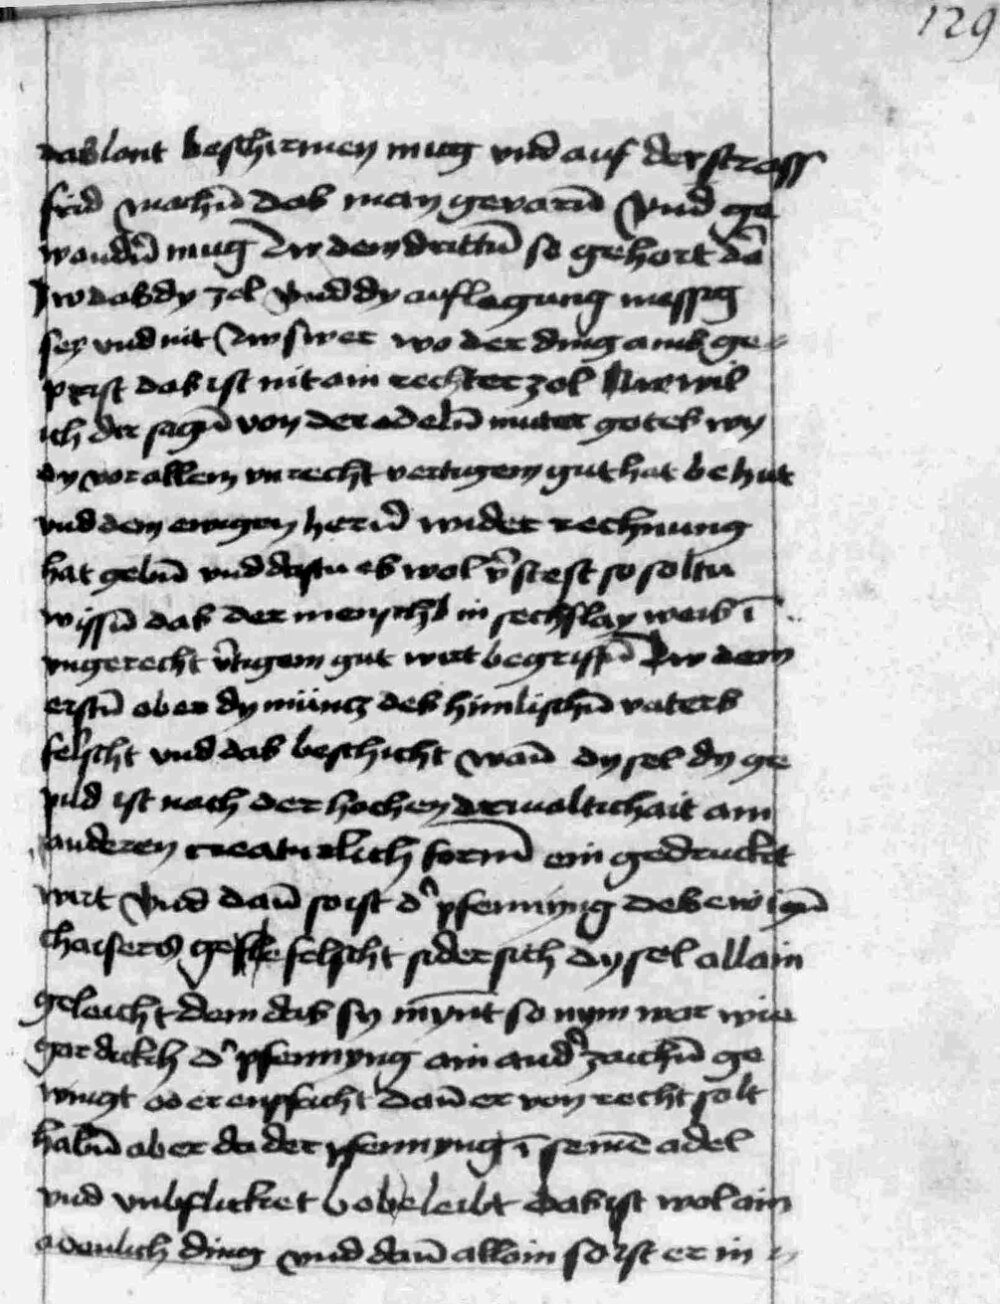 129
das lant beschirmen mug vnd auf der strass
frid machn̄ das man gevarn̄ Vnd ge
wandˀn̄ mug Zw dem drittn̄ so gehort dā
zw das dy zol Vnd dy auflagung messig
sey vnd nit zw swer wo der ding ains ge
prist das ist nit ain rechter zol Nw wil
ich dir sagn̄ von der edeln̄ muter gotes wy
dy vor allem vnrecht vertigem gut hat behut
vnd dem ewigen hern̄ wider rechnung
hat gebn̄ vnd dastu es wol v̄stest so soltu
wissn̄ das der mensch in sechslay weis ī
vngerecht v̄tigem gut wirt begriffn̄ Zw dem
erstn̄ ob er dy müncz des himlischn̄ vaters
felscht vnd das beschicht wan̄ dy sel dy ge
pild ist nach der hochen driualtichait am
anderen creaturlich form̄ ein gedrucket
wirt Vnd dan̄ so ist dˀ pfennyng des ewign̄
chaisers gefelscht sider sich dy sel allain
geleicht dem das sy mȳnt so nym war wie
gar dikch dˀ pfennyng ain andˀ zaichn̄ ge
wingt oder enpfacht dan̄ er von recht solt
habn̄ aber da der pfennyng ī seinē adel
vnd vnbflicket beleibt das ist wol ain
adenlich ding vnd dan̄ allain so ist er in